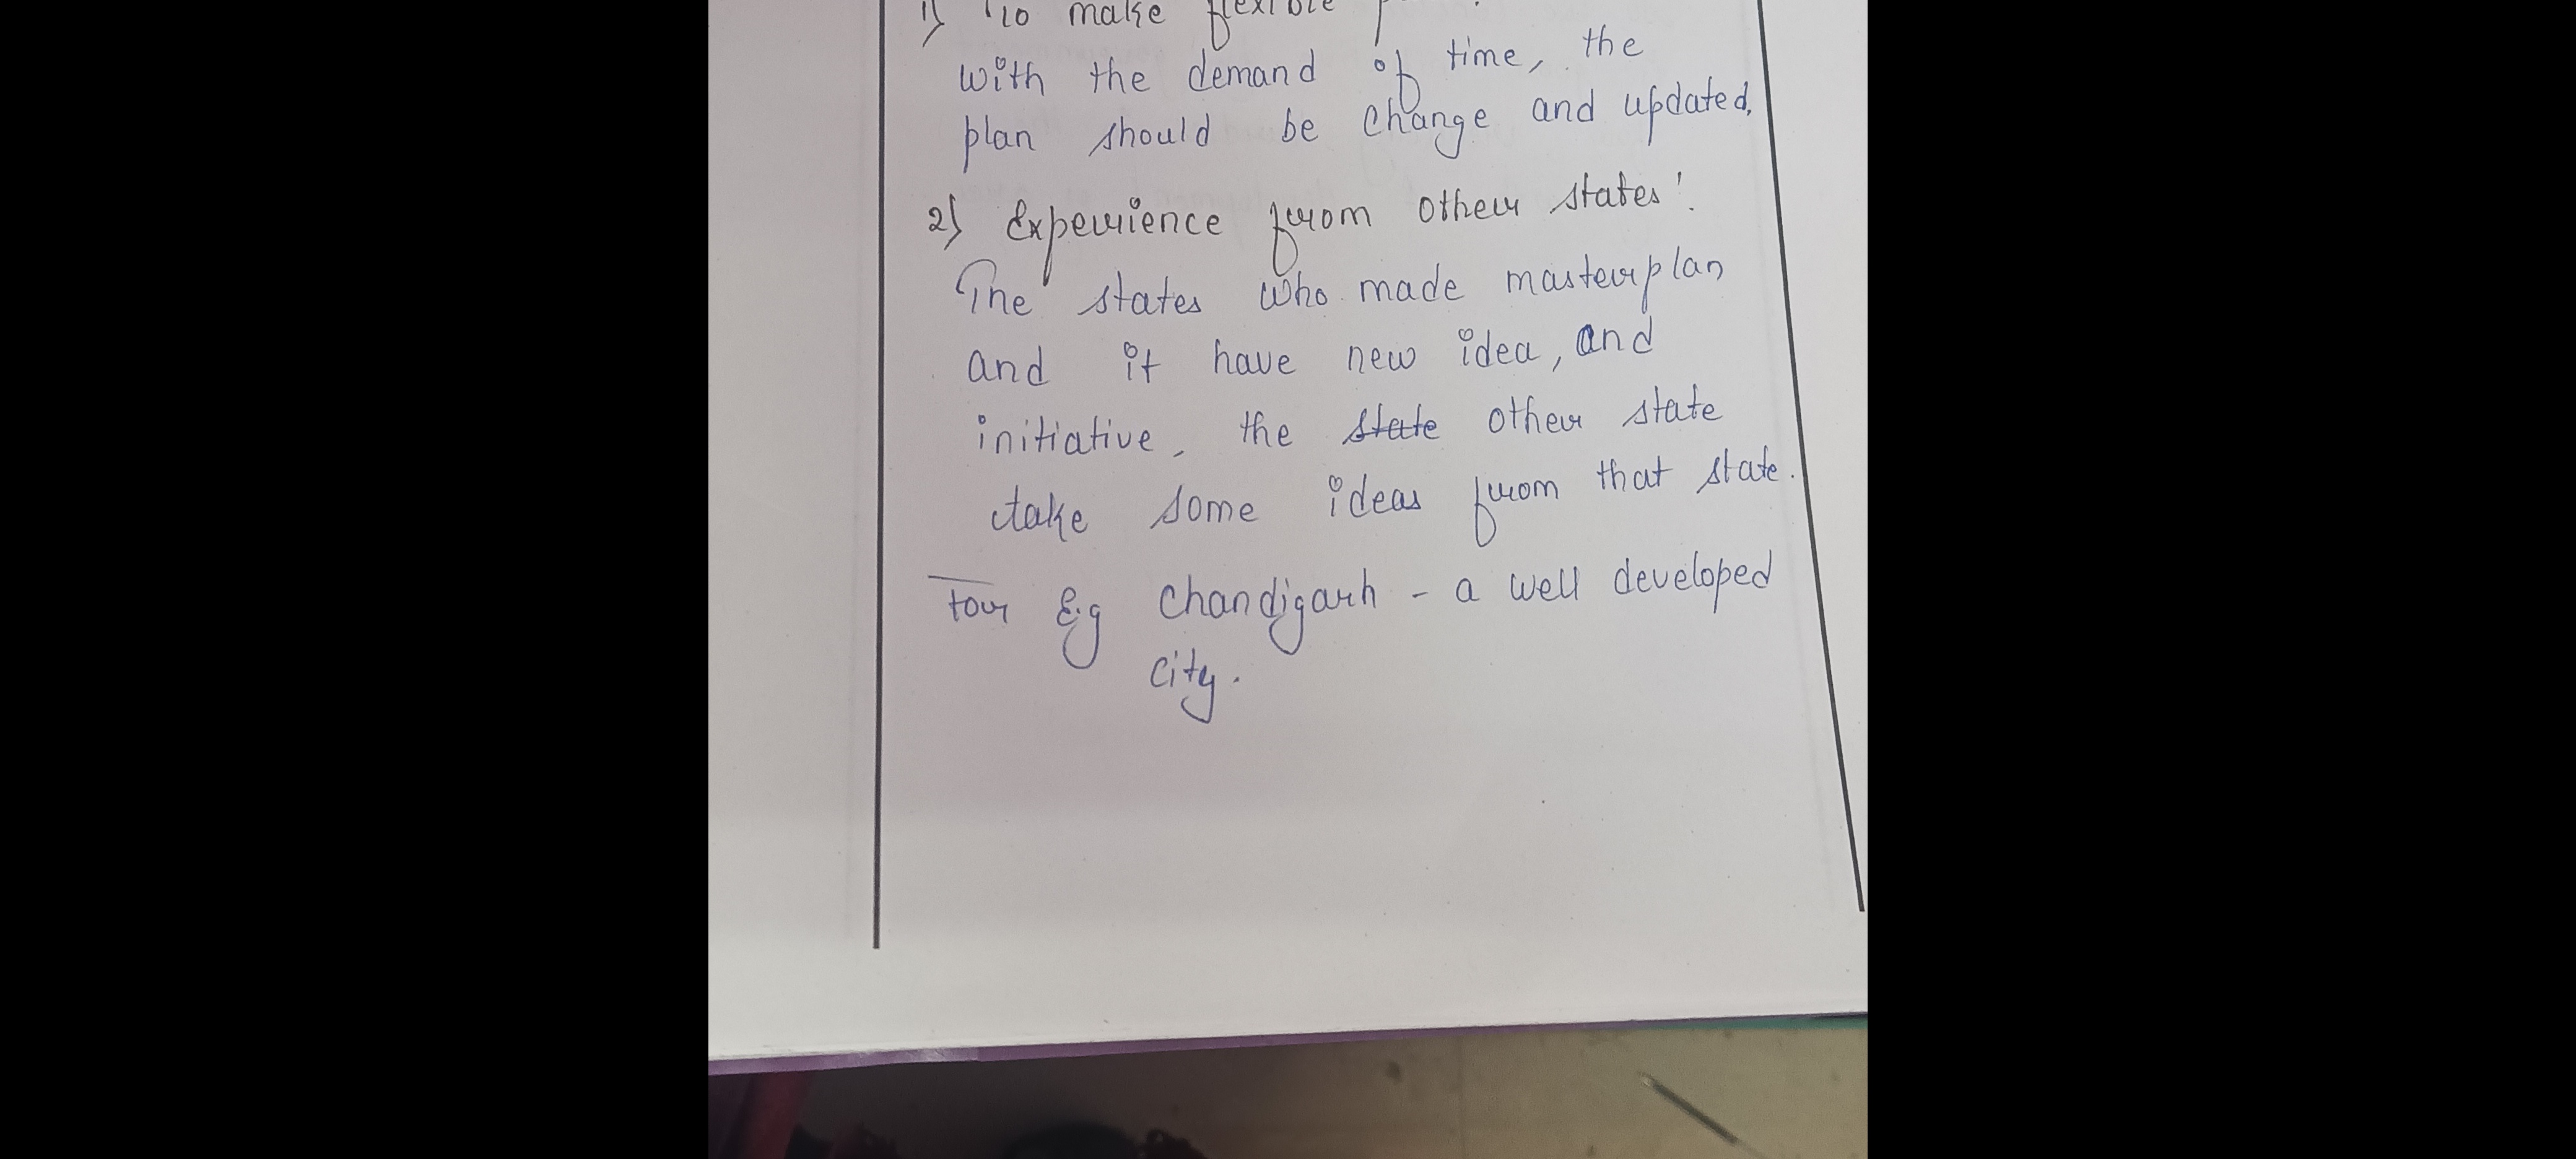 1) To make flexible
with the demand of time, the
plan should be change and updated.
2) Experience from other states:
The states who made masterplan
and it have new idea, and
initiative, the state other state
take some ideas from that state.
For Eg Chandigarh - a well developed
city.